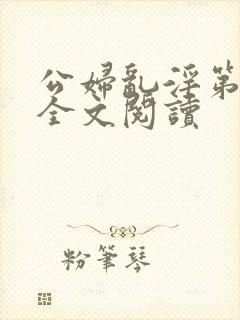 公婦亂淫第
全文閱讀
粉筆琴